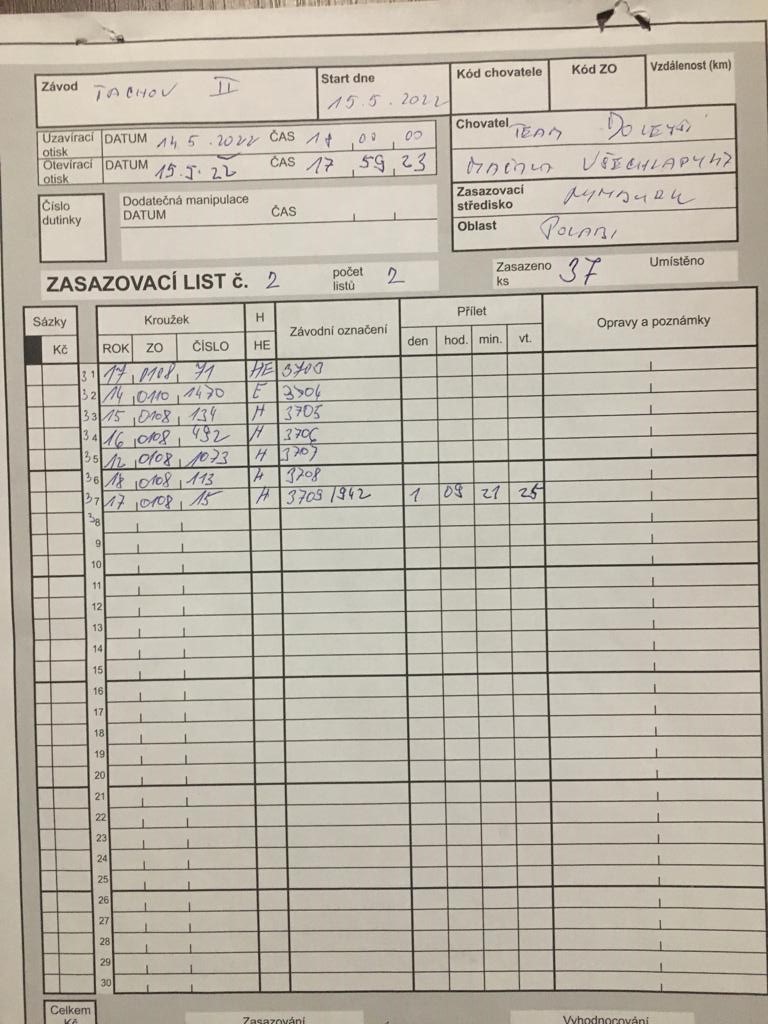 Závod TACHOV II
Start dne 15.5.2022
Kód chovatele
Kód ZO
Vzdálenost (km)
Uzavírací otisk DATUM 14.5.2022 ČAS 18 00 00
Otevírací otisk DATUM 15.5.22 ČAS 17 59 23
Chovatel TEAM DOLEJŠÍ
MACHLA VŠECHLAPY
Zasazovací středisko NYMBURK
Oblast POLABÍ
Číslo dutinky
Dodatečná manipulace
DATUM ČAS
ZASAZOVACÍ LIST č. 2 počet listů 2
Zasazeno ks 37 Umístěno
Sázky Kroužek H Závodní označení Přílet Opravy a poznámky
Kč ROK ZO ČÍSLO HE den hod. min. vt.
31 17 0108 71 HE 3703
32 14 0110 1470 E 3704
33 15 0108 134 H 3705
34 16 0108 492 H 3706
35 12 0108 1073 H 3707
36 18 0108 113 H 3708
37 17 0108 15 H 3709/942 1 09 21 25
38
9
10
11
12
13
14
15
16
17
18
19
20
21
22
23
24
25
26
27
28
29
30
Celkem Kč Zasazování Vyhodnocování